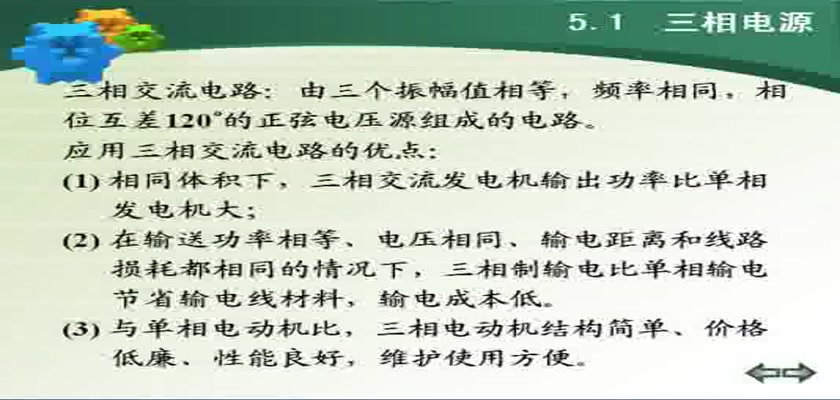 5.1 三相电源
三相交流电路：由三个振幅值相等，频率相同，相
位互差120°的正弦电压源组成的电路。
应用三相交流电路的优点：
(1) 相同体积下，三相交流发电机输出功率比单相
发电机大；
(2) 在输送功率相等、电压相同、输电距离和线路
损耗都相同的情况下，三相制输电比单相输电
节省输电线材料，输电成本低。
(3) 与单相电动机比，三相电动机结构简单、价格
低廉、性能良好，维护使用方便。